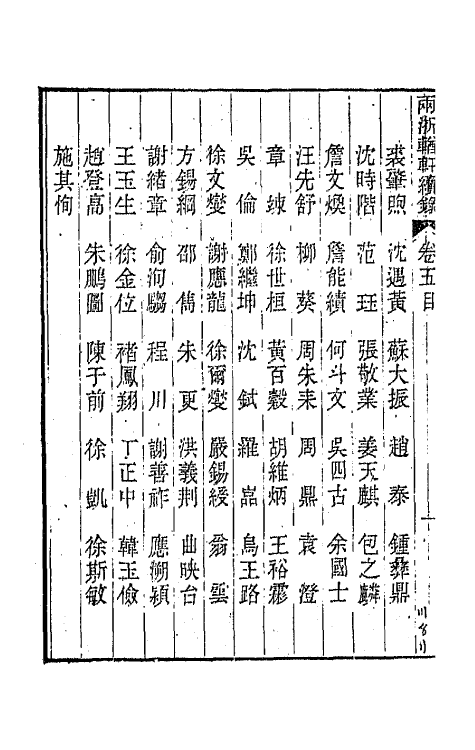 兩浙輶軒續錄 卷五目 一
裘肇煦 沈遇黃 蘇大振 趙泰 鍾彝鼎
沈時階 范珏 張敬業 姜天麒 包之麟
詹文煥 詹能績 何斗文 吳四古 余國士
汪先舒 柳葵 周朱耒 周鼎 袁澄
章竦 徐世桓 黃百穀 胡維炳 王裕霦
吳倫 鄭繼坤 沈鉽 羅嵓 烏王路
徐文燮 謝應龍 徐爾燮 嚴錫綬 翁雲
方錫綱 邵雋 朱更 洪義荆 曲映台
謝緒章 俞洵驌 程川 謝善祚 應溯潁
王玉生 徐金位 褚鳳翔 丁正中 韓玉儉
趙登高 朱鵬圖 陳于前 徐凱 徐斯敏
施其恂